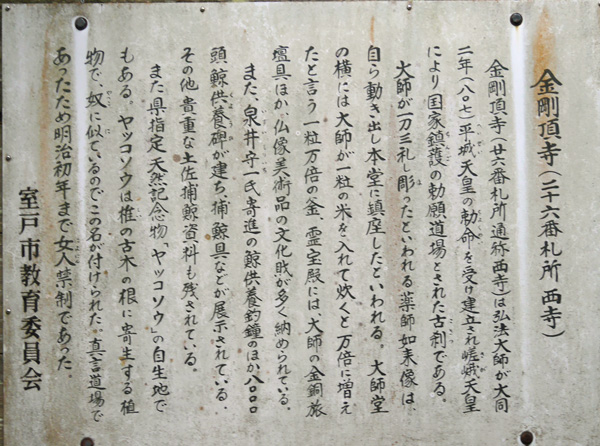 金剛頂寺(二十六番札所 西寺)
金剛頂寺(廿六番札所通称西寺)は弘法大師が大同
二年(八〇七)平城天皇の勅命を受け建立され嵯峨天皇
により国家鎮護の勅願道場とされた古刹である。
大師が一刀三礼し彫ったといわれる薬師如来像は、
自ら動き出し本堂に鎮座したといわれる。大師堂
の横には大師が一粒の米を入れて炊くと万倍に増え
たと言う一粒万倍の釜、霊宝殿には、大師の金銅旅
壇具ほか、仏像美術品の文化財が多く納められている。
また、泉井守一氏寄進の鯨供養釣鐘のほか八〇〇〇
頭、鯨供養碑が建ち、捕鯨具などが展示されている。
その他貴重な土佐捕鯨資料も残されている。
また県指定天然記念物「ヤッコソウ」の自生地で
もある。ヤッコソウは椎の古木の根に寄生する植
物で、奴に似ているのでこの名が付けられた。真言道場で
あったため明治初年まで女人禁制であった。
室戸市教育委員会